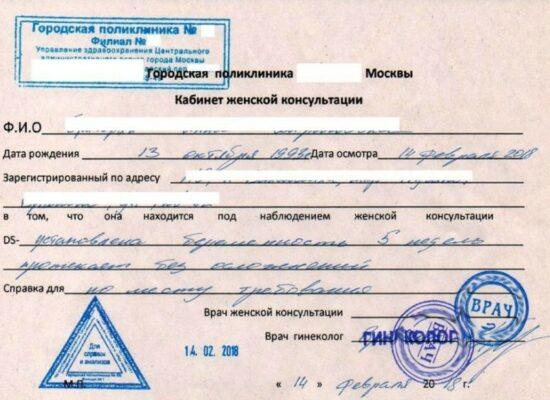 Городская поликлиника №
Филиал №
Управление здравоохранения Центрального
административного округа города Москвы
Городская поликлиника Москвы
Кабинет женской консультации
Ф.И.О
Дата рождения 13 октября 1993г Дата осмотра 14 февраля 2018
Зарегистрированный по адресу
в том, что она находится под наблюдением женской консультации
DS- установлена беременность 5 недель
протекает без осложнений
Справка для по месту требования
Врач женской консультации
Врач гинеколог
ГИНЕКОЛОГ
ВРАЧ
ВРАЧ
Для справок и анализов
14. 02. 2018
М.П. « 14 » февраля 2018 г.